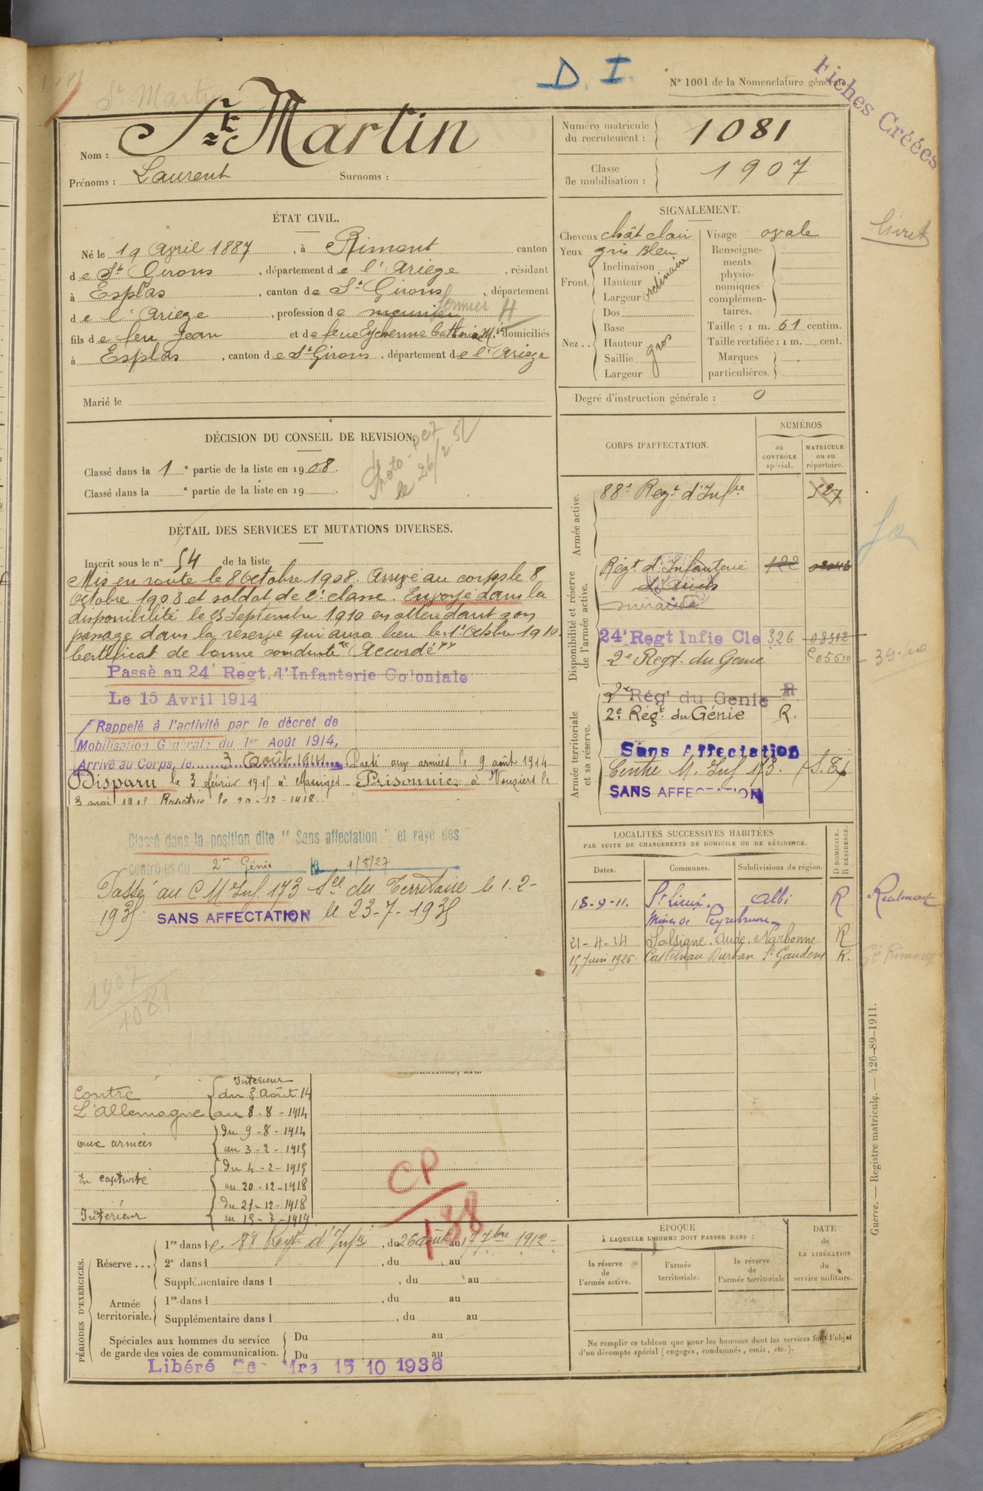 D. I.
N° 1001 de la Nomenclature générale
Fiches Créées
St Martin
Nom : St Martin
Prénoms : Laurent Surnoms :
Numéro matricule du recrutement : 1081
Classe de mobilisation : 1907
ÉTAT CIVIL.
Né le 19 Avril 1887, à Rimont canton
de St Girons, département de l'Ariège, résidant
à Esplas, canton de St Girons, département
de l'Ariège, profession de
fermier H
fils de feu Jean et de feue Eychenne domiciliés
à Esplas, canton de St Girons, département de l'Ariège
Marié le
SIGNALEMENT.
Cheveux chât clair
Yeux gris bleu
Front Inclinaison
Hauteur ordinaire
Largeur
Nez Dos
Base
Hauteur gros
Saillie
Largeur
Visage ovale
Renseignements physionomiques complémentaires.
Taille : 1 m. 61 centim.
Taille rectifiée : 1 m. cent.
Marques particulières.
Degré d'instruction générale : 0
livret
DÉCISION DU CONSEIL DE REVISION.
Classé dans la 1e partie de la liste en 1908.
Classé dans la e partie de la liste en 19
DÉTAIL DES SERVICES ET MUTATIONS DIVERSES.
Inscrit sous le n° 54 de la liste
Mis en route le 8 octobre 1908. Arrivé au corps le 8
octobre 1908 et soldat de 2e classe. Envoyé dans la
disponibilité le 25 Septembre 1910 en attendant son
passage dans la réserve qui aura lieu le 1er octobre 1910
Certificat de bonne conduite Accordé
Passé au 24e Regt. d'Infanterie Coloniale
Le 15 Avril 1914
Rappelé à l'activité par le décret de
Mobilisation Générale du 1er Août 1914,
Arrivé au Corps, le 3 Août 1914. Parti aux armées le 9 août 1914
Disparu le 3 février 1915 à Massiges - Prisonnier à Vouziers le
3 mai 1915 Rapatrié le 20-12-1918.
Classé dans la position dite " Sans affectation " et rayé des
contrôles du 2me Génie le 1/8/27
Passé au C M Inf 173 Sce du Territoire le 1.2-
1935. SANS AFFECTATION le 23-7-1935
1907
1081
CORPS D'AFFECTATION.
NUMÉROS
au CONTRÔLE spécial.
MATRICULE ou au répertoire.
Armée active.
88e Regt d'Infie
Disponibilité et réserve de l'armée active.
Regt d'Infanterie
24e Regt Infie Cle 326
2e Regt. du Génie
Armée territoriale et sa réserve.
2e Rég du Genie R
2e Régt du Génie R.
Sans Affectation
Centre M. Inf 173.
SANS AFFECTATION
LOCALITÉS SUCCESSIVES HABITÉES
PAR SUITE DE CHANGEMENTS DE DOMICILE OU DE RÉSIDENCE.
Dates. Communes. Subdivisions de région. D DOMICILE. R RÉSIDENCE.
18-9-11. St Lieux. Albi R Realmont
Mines de
21-4-14 Salsigne. Aude. Narbonne R
15 Juin 1926 Castelnau Durban St Gaudens R.
Contre L'Allemagne Intérieur du 3 Août 14 au 8-8-1914
aux armées du 9-8-1914 au 3-2-1915
En captivité du 4-2-1915 au 20-12-1918
Intérieur du 21-12-1918 au 15-7-1919
CP
188
PÉRIODES D'EXERCICES.
Réserve ... 1re dans le 88 Regt d'Infie, du 26 août au 17 7bre 1912
2e dans l , du au
Supplémentaire dans l , du au
Armée territoriale. 1re dans l , du au
Supplémentaire dans l , du au
Spéciales aux hommes du service de garde des voies de communication. Du au
Du au
Libéré 15 10 1936
ÉPOQUE
À LAQUELLE L'HOMME DOIT PASSER DANS :
la réserve de l'armée active.
l'armée territoriale.
la réserve de l'armée territoriale
DATE DE LA LIBÉRATION du service militaire.
Ne remplir ce tableau que pour les hommes dont les services font l'objet
d'un décompte spécial (engagés, condamnés, omis, etc.).
Guerre. — Registre matricule. — 426-89-1911.